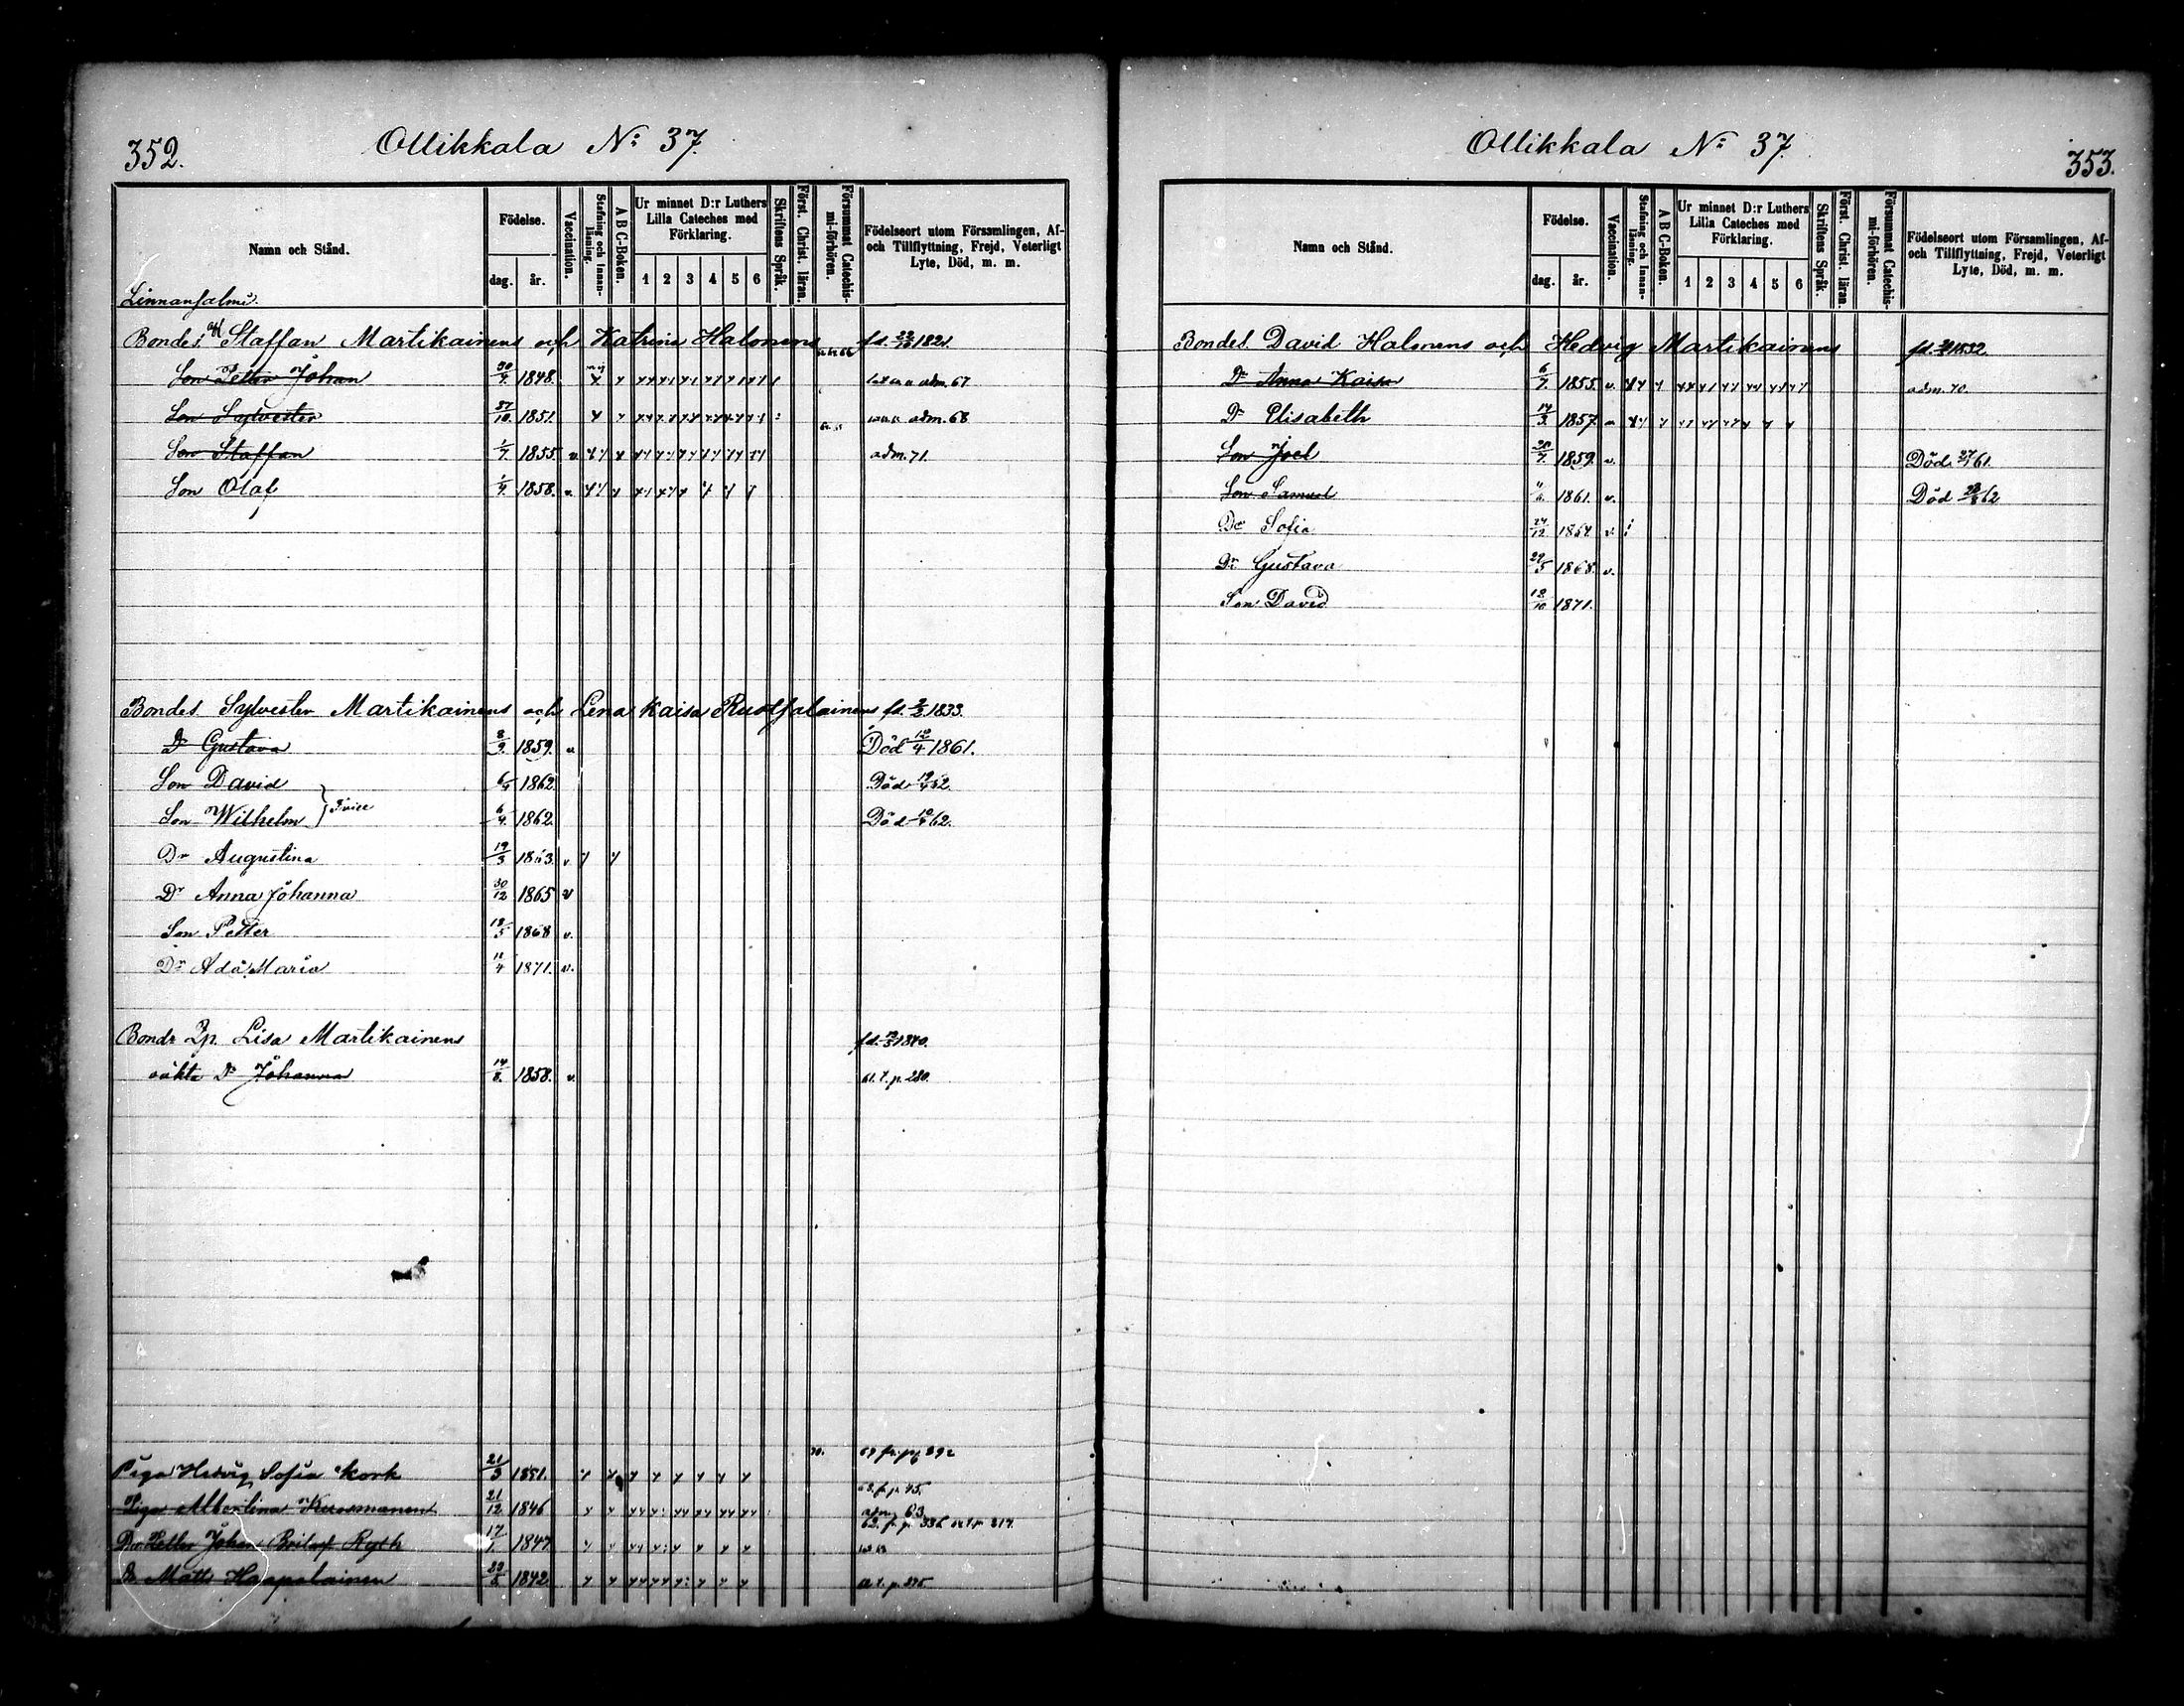 352.
Ollikkala No 37.
Namn och Stånd.
Födelse.
dag.
år.
Vaccination.
Stafning och Innanläsning.
A B C-Boken.
Ur minnet D:r Luthers Lilla Cateches med Förklaring.
1 2 3 4 5 6
Skriftens Språk.
Först. Christ. läran.
Försummat Catechismi-förhören.
Födelseort utom Församlingen, Af- och Tillflyttning, Frejd, Veterligt Lyte, Död, m. m.
Linnansalmi.
Bondes Staffan Martikainens och Katrina Halonens fd. 1821.
Son Petter Johan 30/4 1848. adm. 67
Son Sylvester 31/10 1851. adm. 68
Son Staffan 1/7 1855 v. adm. 71.
Son Olaf 1/4 1858. v.
Bondes Sylvester Martikainens och Lena Kaisa fd. 1833.
Dr Gustava 8/9 1859. Död 12/4 1861.
Son David 6/4 1862 Död
Son Wilhelm 6/4 1862. Död 62.
Dr Augustina 19/3 1863. v.
Dr Anna Johanna 30/12 1865 v
Son Petter 19/5 1868 v.
Dr Ada Maria 11/4 1871. v.
Bondr Lisa Martikainens fd. 1840.
oäkta Dr Johanna 14/8 1858. v. p. 280.
Piga Hedvig Sofia Kork 21/3 1851.
Piga Albertina Kuosmanen 21/12 1846 adm. 63
Johan 17/1 1847
Dr Matts Haapalainen 23/5 1842
353.
Ollikkala No 37.
Namn och Stånd.
Födelse.
dag.
år.
Vaccination.
Stafning och Innanläsning.
A B C-Boken.
Ur minnet D:r Luthers Lilla Cateches med Förklaring.
1 2 3 4 5 6
Skriftens Språk.
Först. Christ. läran.
Försummat Catechismi-förhören.
Födelseort utom Församlingen, Af- och Tillflyttning, Frejd, Veterligt Lyte, Död, m. m.
Bondes David Halonens och Hedvig Martikainens
Dr Anna Kaisa 6/7 1855. v. adm. 70.
Dr Elisabeth 14/3 1857.
Son Joel 1859. v. Död 61.
Son Samuel 1861. v. Död 62
Dr Sofia 24/12 1864 v.
Dr Gustava 29/5 1868. v.
Son David 12/10 1871.